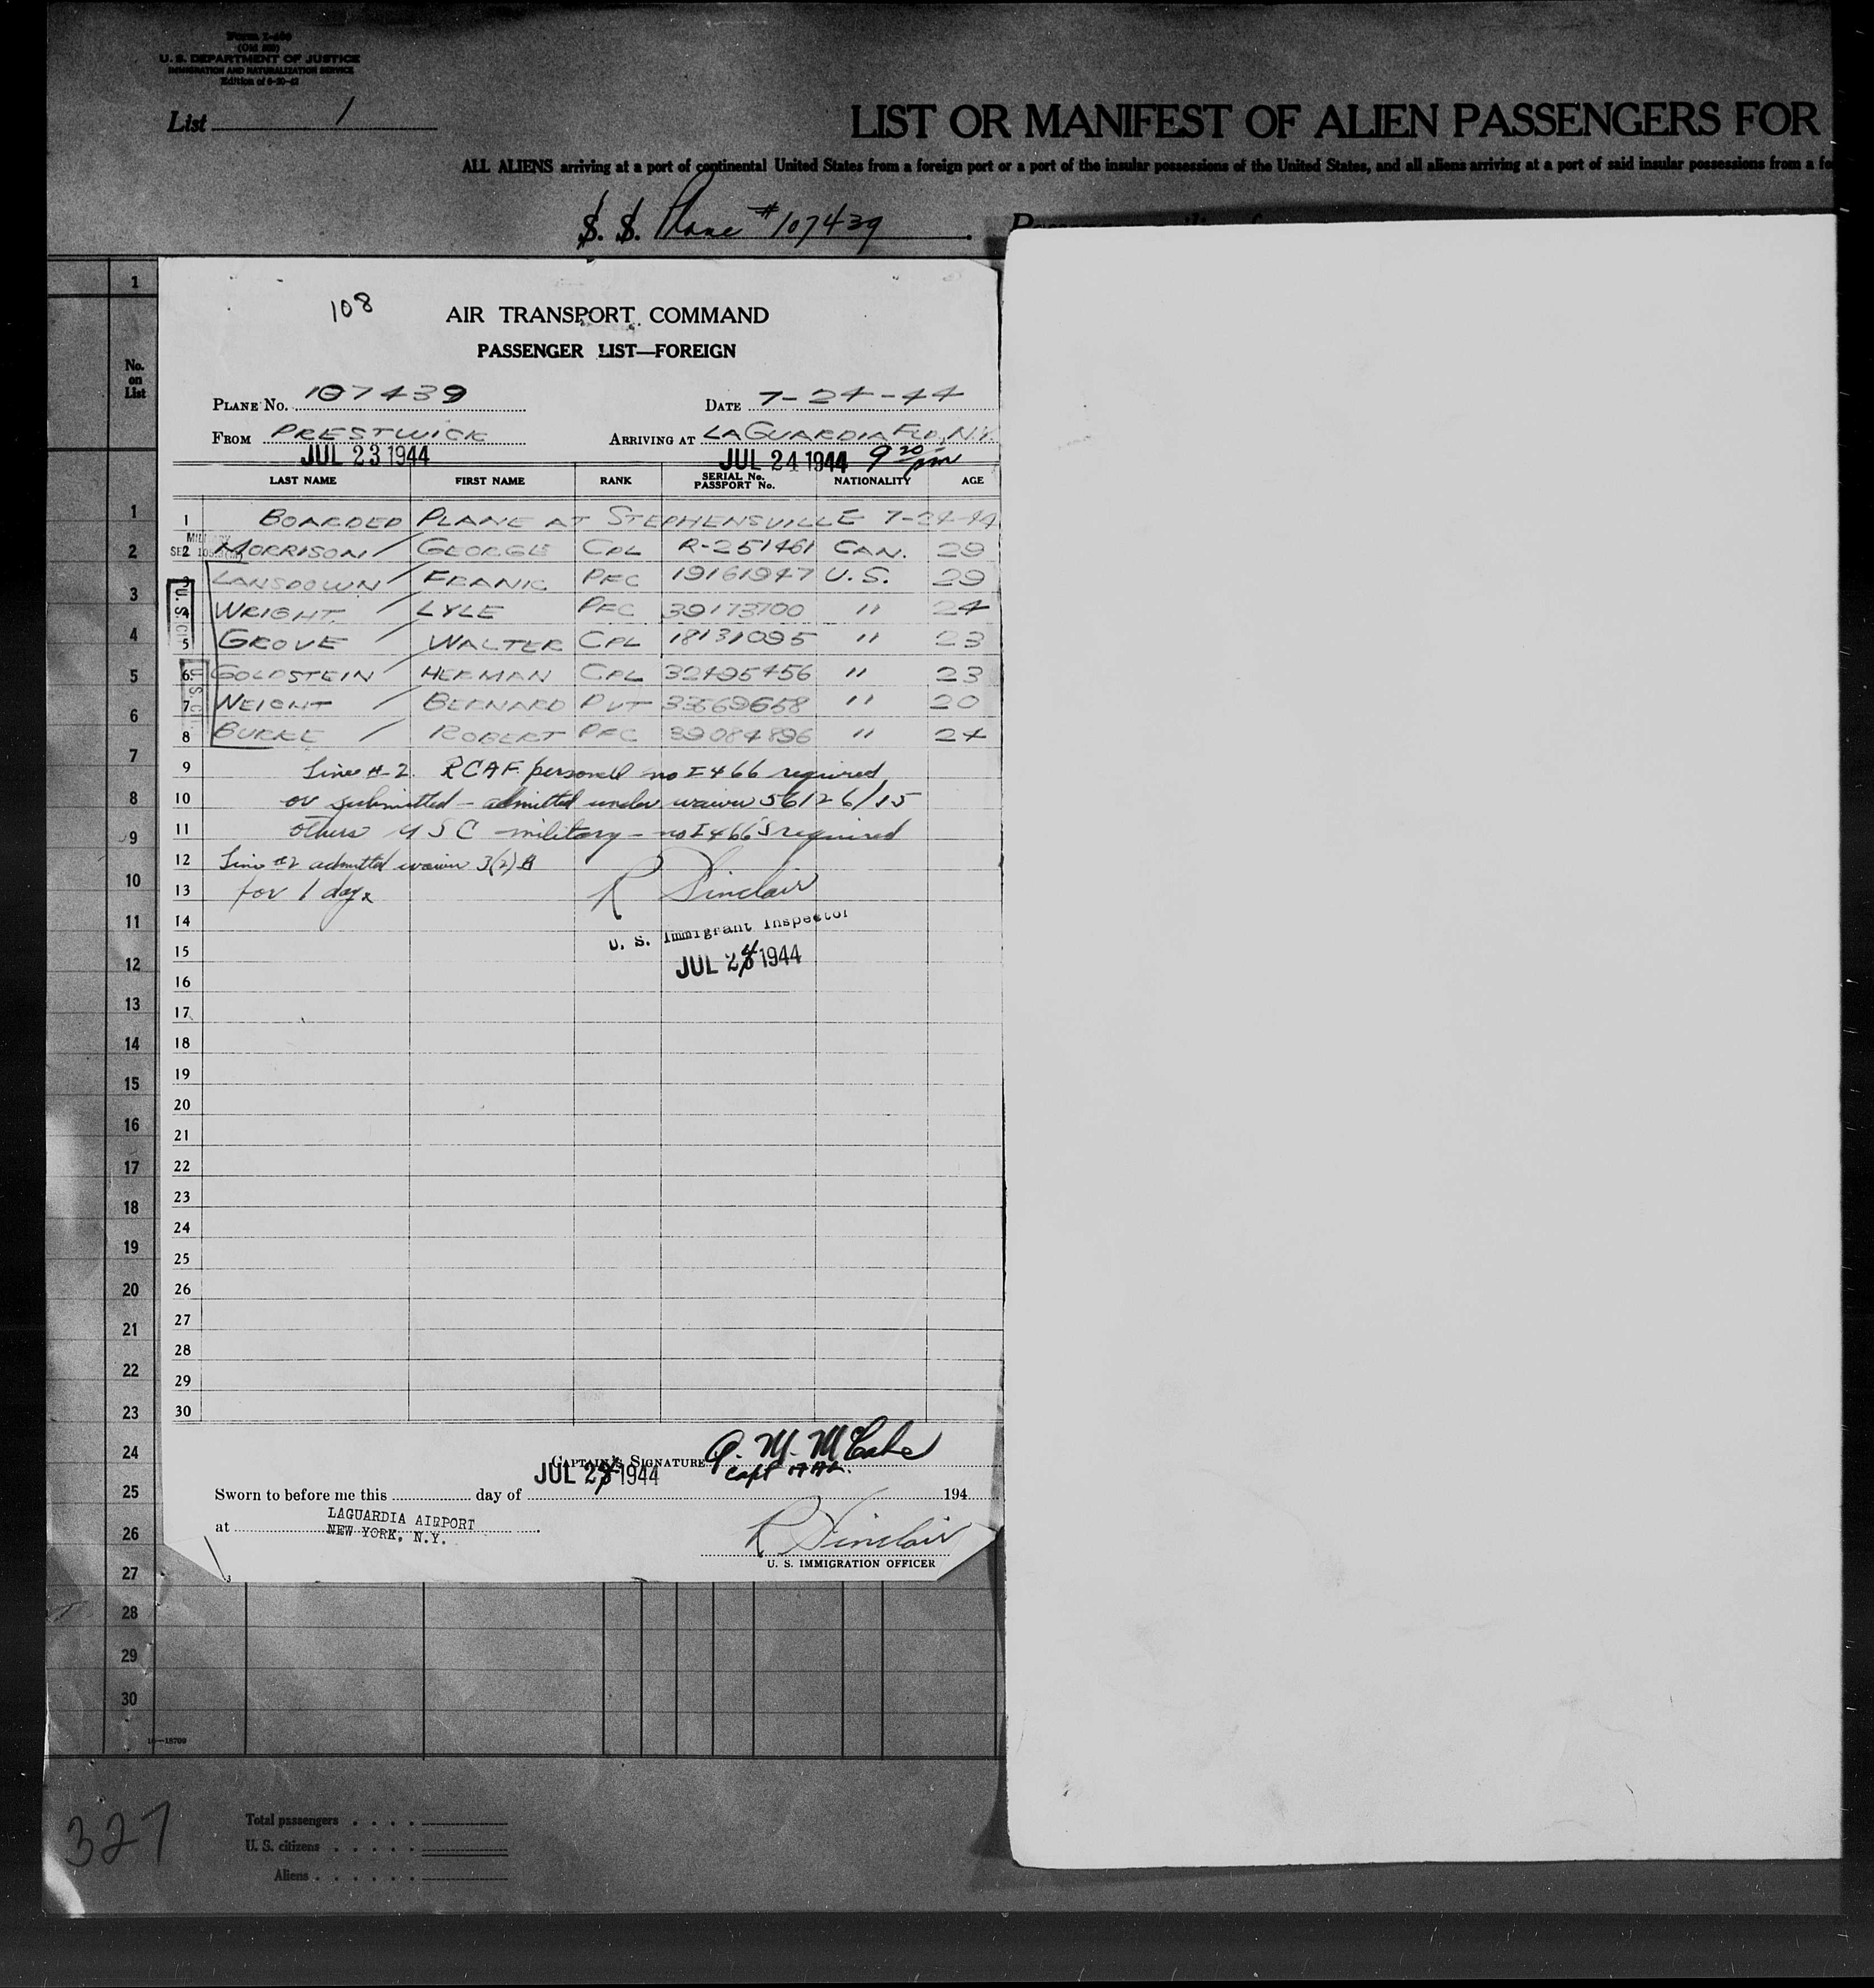 Form I-466
(Old 500)
U. S. DEPARTMENT OF JUSTICE
IMMIGRATION AND NATURALIZATION SERVICE
Edition of 6-20-42
List 1
LIST OR MANIFEST OF ALIEN PASSENGERS FOR
ALL ALIENS arriving at a port of continental United States from a foreign port or a port of the insular possessions of the United States, and all aliens arriving at a port of said insular possessions from a fo
S. S. Plane #107439
108
AIR TRANSPORT COMMAND
PASSENGER LIST—FOREIGN
PLANE No. 107439 DATE 7-24-44
FROM PRESTWICK ARRIVING AT LAGUARDIA FLD, N.Y.
JUL 23 1944 JUL 24 1944 9 20 pm
No. on List
LAST NAME FIRST NAME RANK SERIAL No. PASSPORT No. NATIONALITY AGE
1 BOARDED PLANE AT STEPHENSVILLE 7-24-44
2 MORRISON / GEORGE CPL R-251461 CAN. 29
3 LANSDOWN / FRANK PFC 19161947 U.S. 29
4 WRIGHT / LYLE PFC 39173700 " 24
5 GROVE / WALTER CPL 18131095 " 23
6 GOLDSTEIN / HERMAN CPL 32495456 " 23
7 NEIGHT / BERNARD PVT 33569658 " 20
8 BURKE / ROBERT PFC 39084896 " 24
9 Line #2 RCAF personell no I466 required
10 or submitted - admitted under waiver 56126/15
11 others USC military - no I466's required
12 Line #2 admitted waiver 3(2) B
13 for 1 day
R Sinclair
14
U. S. Immigrant Inspector
15
JUL 24 1944
16
17
18
19
20
21
22
23
24
25
26
27
28
29
30
CAPTAIN'S SIGNATURE
JUL 24 1944
Capt
Sworn to before me this day of 194
at LAGUARDIA AIRPORT
NEW YORK, N.Y.
R Sinclair
U. S. IMMIGRATION OFFICER
3
1
1
2
3
4
5
6
7
8
9
10
11
12
13
14
15
16
17
18
19
20
21
22
23
24
25
26
27
28
29
30
16—18700
327
Total passengers
U. S. citizens
Aliens